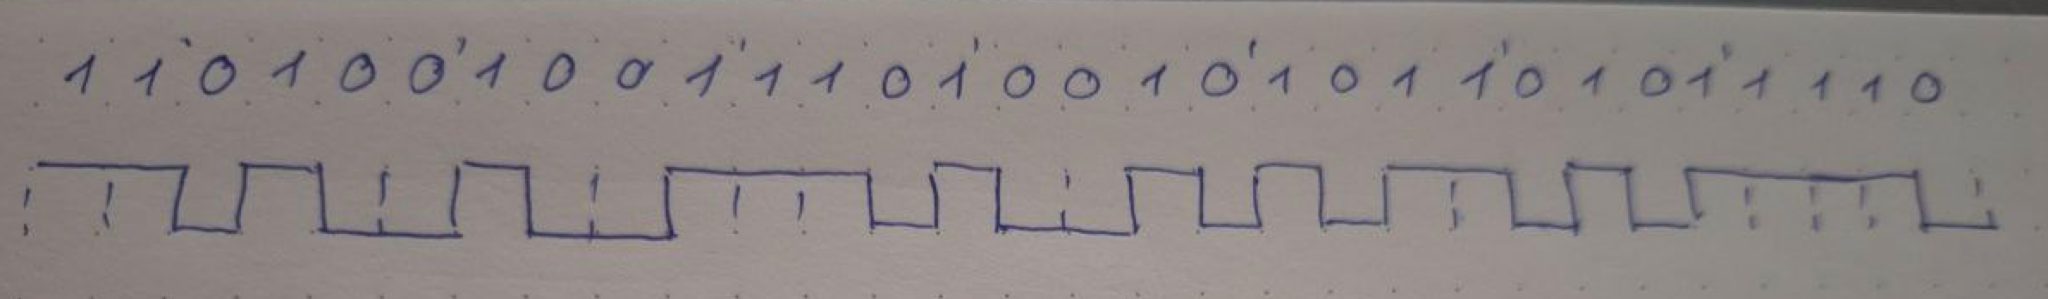 1 1 0 1 0 0 1 0 0 1 1 1 0 1 0 0 1 0 1 0 1 1 0 1 0 1 1 1 1 0